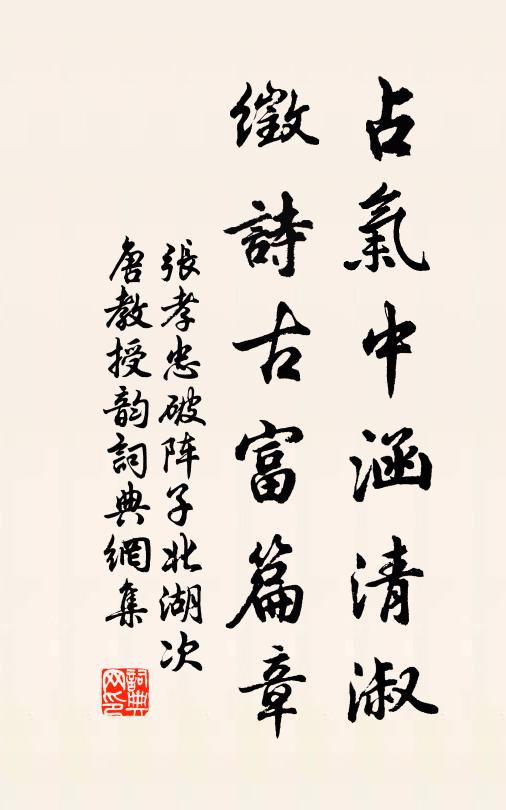 占氣中涵清淑
徵詩古富篇章
張孝忠破阵子北湖次
唐教授韵詞典網集
詞典网印